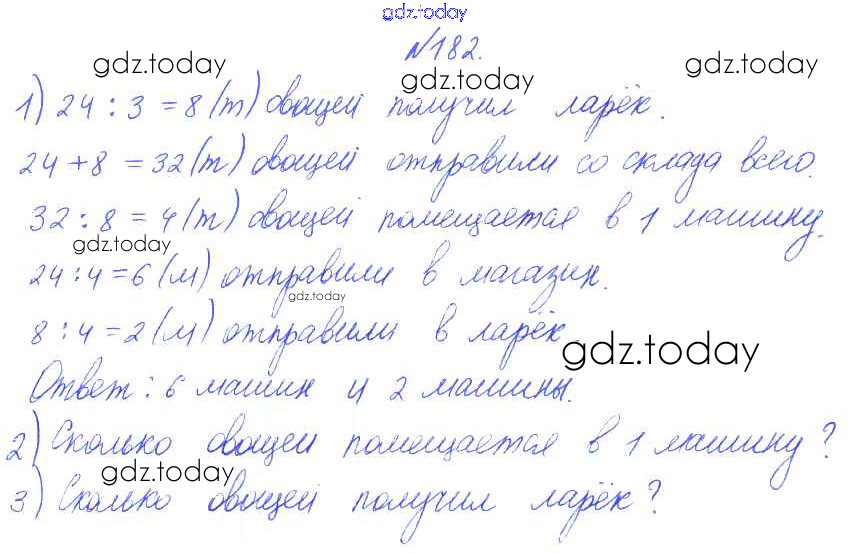 gdz.today
№182.
gdz.today gdz.today gdz.today
1) 24 : 3 = 8 (т) овощей получил ларёк.
24 + 8 = 32 (т) овощей отправили со склада всего.
32 : 8 = 4 (т) овощей помещается в 1 машину.
gdz.today
24 : 4 = 6 (м) отправили в магазин.
gdz.today
8 : 4 = 2 (м) отправили в ларёк.
gdz.today
Ответ: 6 машин и 2 машины.
2) Сколько овощей помещается в 1 машину?
gdz.today
3) Сколько овощей получил ларёк?